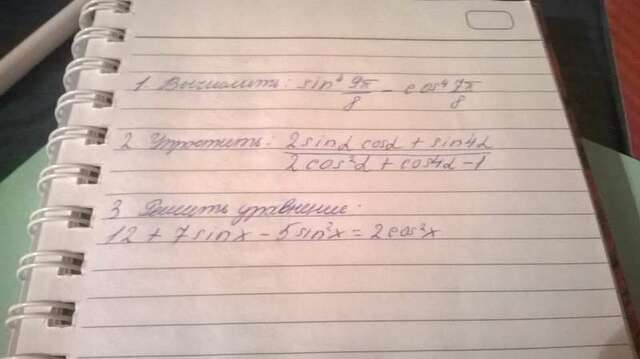 1 Вычислить: sin⁴ 9π/8 - cos⁴ 7π/8
2 Упростить: 2sinα cosα + sin4α / 2cos²α + cos4α - 1
3 Решить уравнение:
12 + 7sinx - 5sin²x = 2cos²x